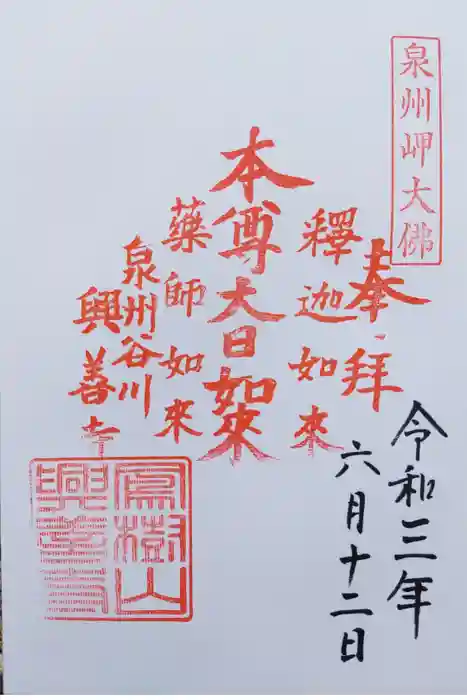 泉州岬大佛
奉拝
令和三年
六月十二日
釋迦如來
本尊大日如來
藥師如來
泉州谷川
興善寺
鳳樹山
興善寺